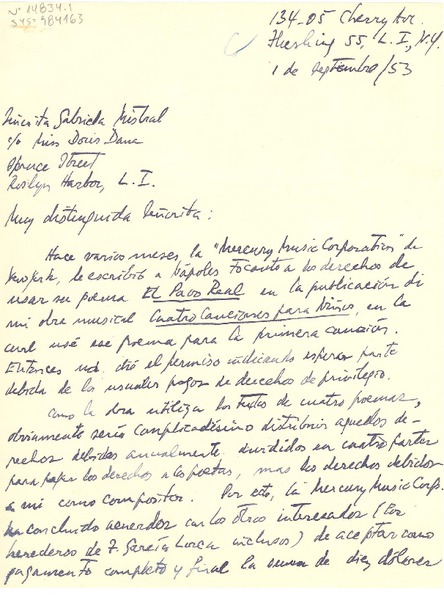 Nº 14834.1
SYS: 984163
134-05 Cherry Ave.
Flushing 55, L. I., N.Y.
1 de septembre/53
Señorita Gabriela Mistral
c/o Miss Doris Dana
Spruce Street
Roslyn Harbor, L. I.
Muy distinguida Señorita:
Hace varios meses, la "Mercury Music Corporation" de
New York, le escribió a Nápoles tocante a los derechos de
usar su poema El Pavo Real en la publicación di
mi obra musical Cuatro Canciones para Niños, en la
cual usé ese poema para la primera canción.
Entonces ud. dió el permiso indicando esperar parte
debida de los usuales pagos de derechos de privilegio.
Como la obra utiliza los textos de cuatro poemas,
obviamente sería complicadísimo distribuir aquellos de-
rechos debidos anualmente divididos en cuatro partes
para pagar los derechos a los poetas, mas los derechos debidos
a mi como compositor. Por esto, la Mercury Music Corp.
ha concluido acuerdos con los otros interesados (los
herederos de F. García Lorca inclusos) de aceptar como
pagamento completo y final la suma de diez dólares